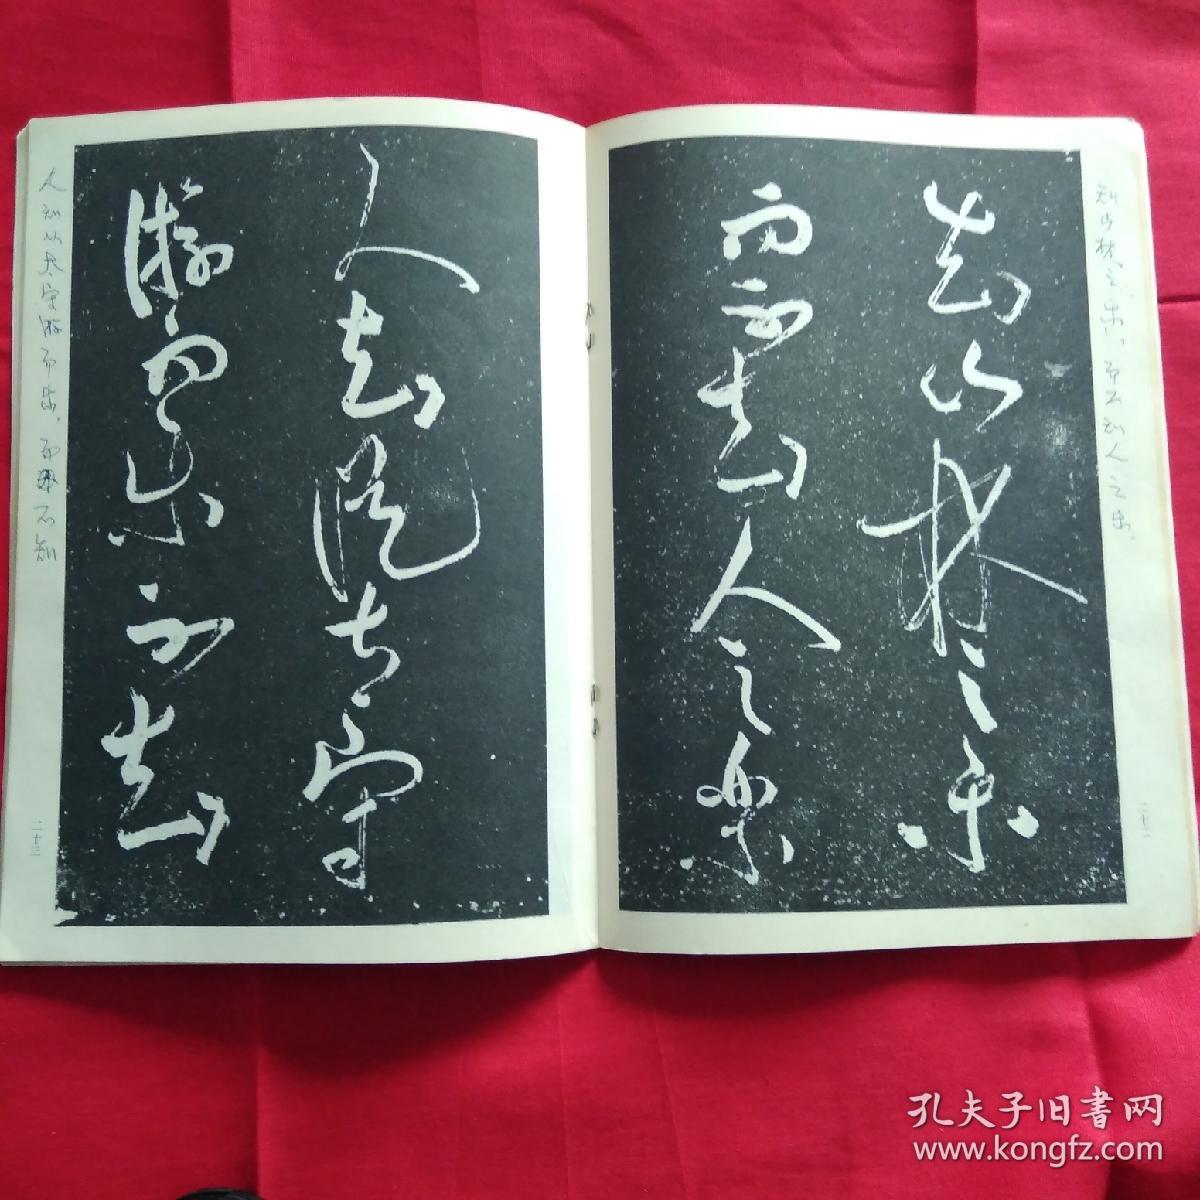 知山林之乐
而不知人之乐
知山林之乐，而不知人之乐。
二十二
人知从太守
游而乐而不知
人知从太守游而乐，而不知
二十三
孔夫子旧书网
www.kongfz.com